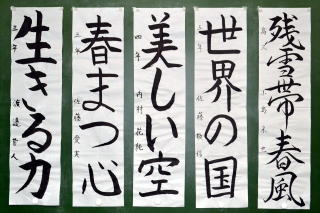 残雪帯春風
世界の国
美しい空
四年 内村花純
春まつ心
三年 佐藤愛美
生きる力
三年